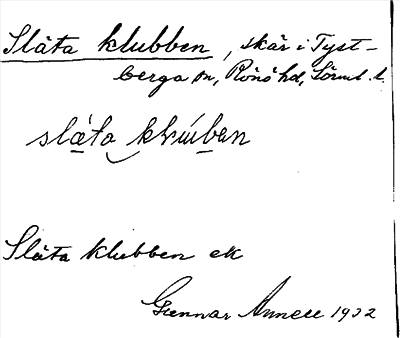 Släta klubben, skär i Tyst-
berga sn, Rönö hd, Sörml. l.
släta
Släta klubben ek
Gunnar 1932